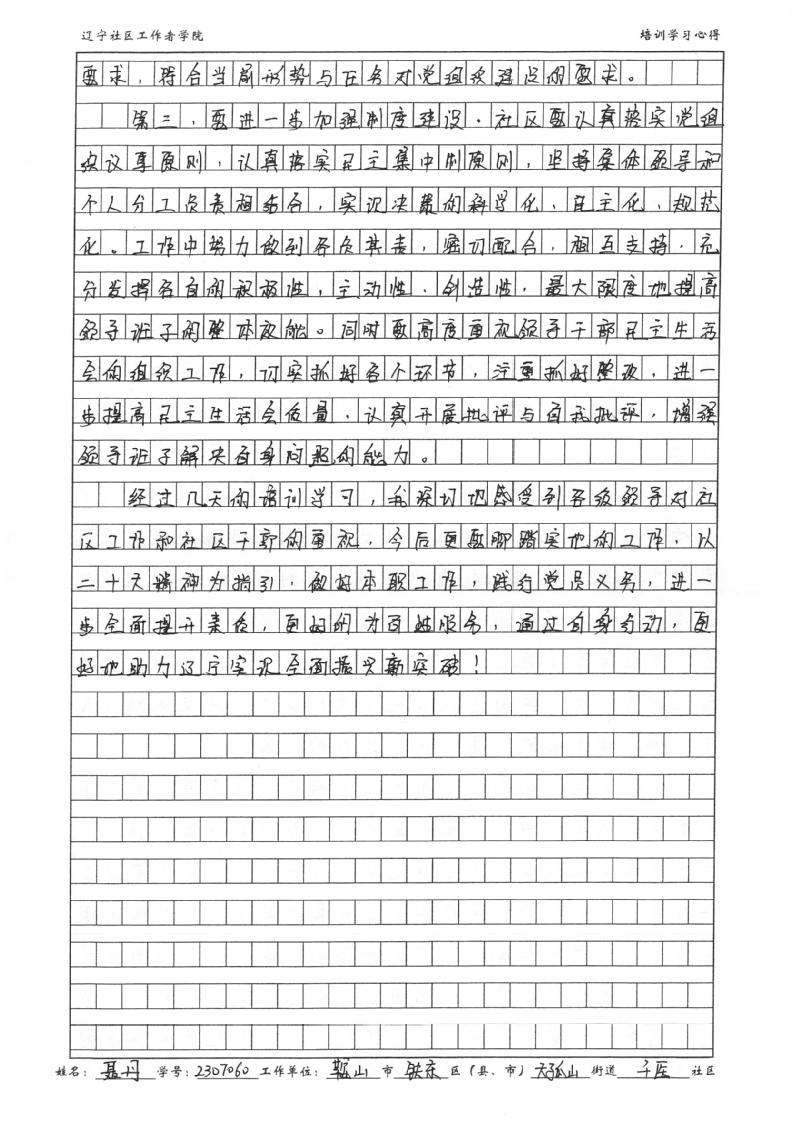 辽宁社区工作者学院 培训学习心得
要求，符合当前形势与任务对党组织建设的要求。
第三，要进一步加强制度建设。社区要认真落实党组
织议事原则，认真落实民主集中制原则，坚持集体领导和
个人分工负责相结合，实现决策的科学化、民主化、规范
化。工作中努力做到各负其责，密切配合，相互支持，充
分发挥各自的积极性，主动性、创造性，最大限度地提高
领导班子的整体效能。同时要高度重视领导干部民主生活
会的组织工作，切实抓好各个环节，注重抓好整改，进一
步提高民主生活会质量，认真开展批评与自我批评，增强
领导班子解决自身问题的能力。
经过几天的培训学习，我深切地感受到各级领导对社
区工作和社区干部的重视，今后更要脚踏实地的工作，以
二十大精神为指引，做好本职工作，践行党员义务，进一
步全面提升素质，更好的为百姓服务，通过自身行动，更
好地助力辽宁实现全面振兴新突破！
姓名：聂丹 学号：2307060 工作单位：鞍山 市 铁东 区（县、市） 大孤山 街道 社区